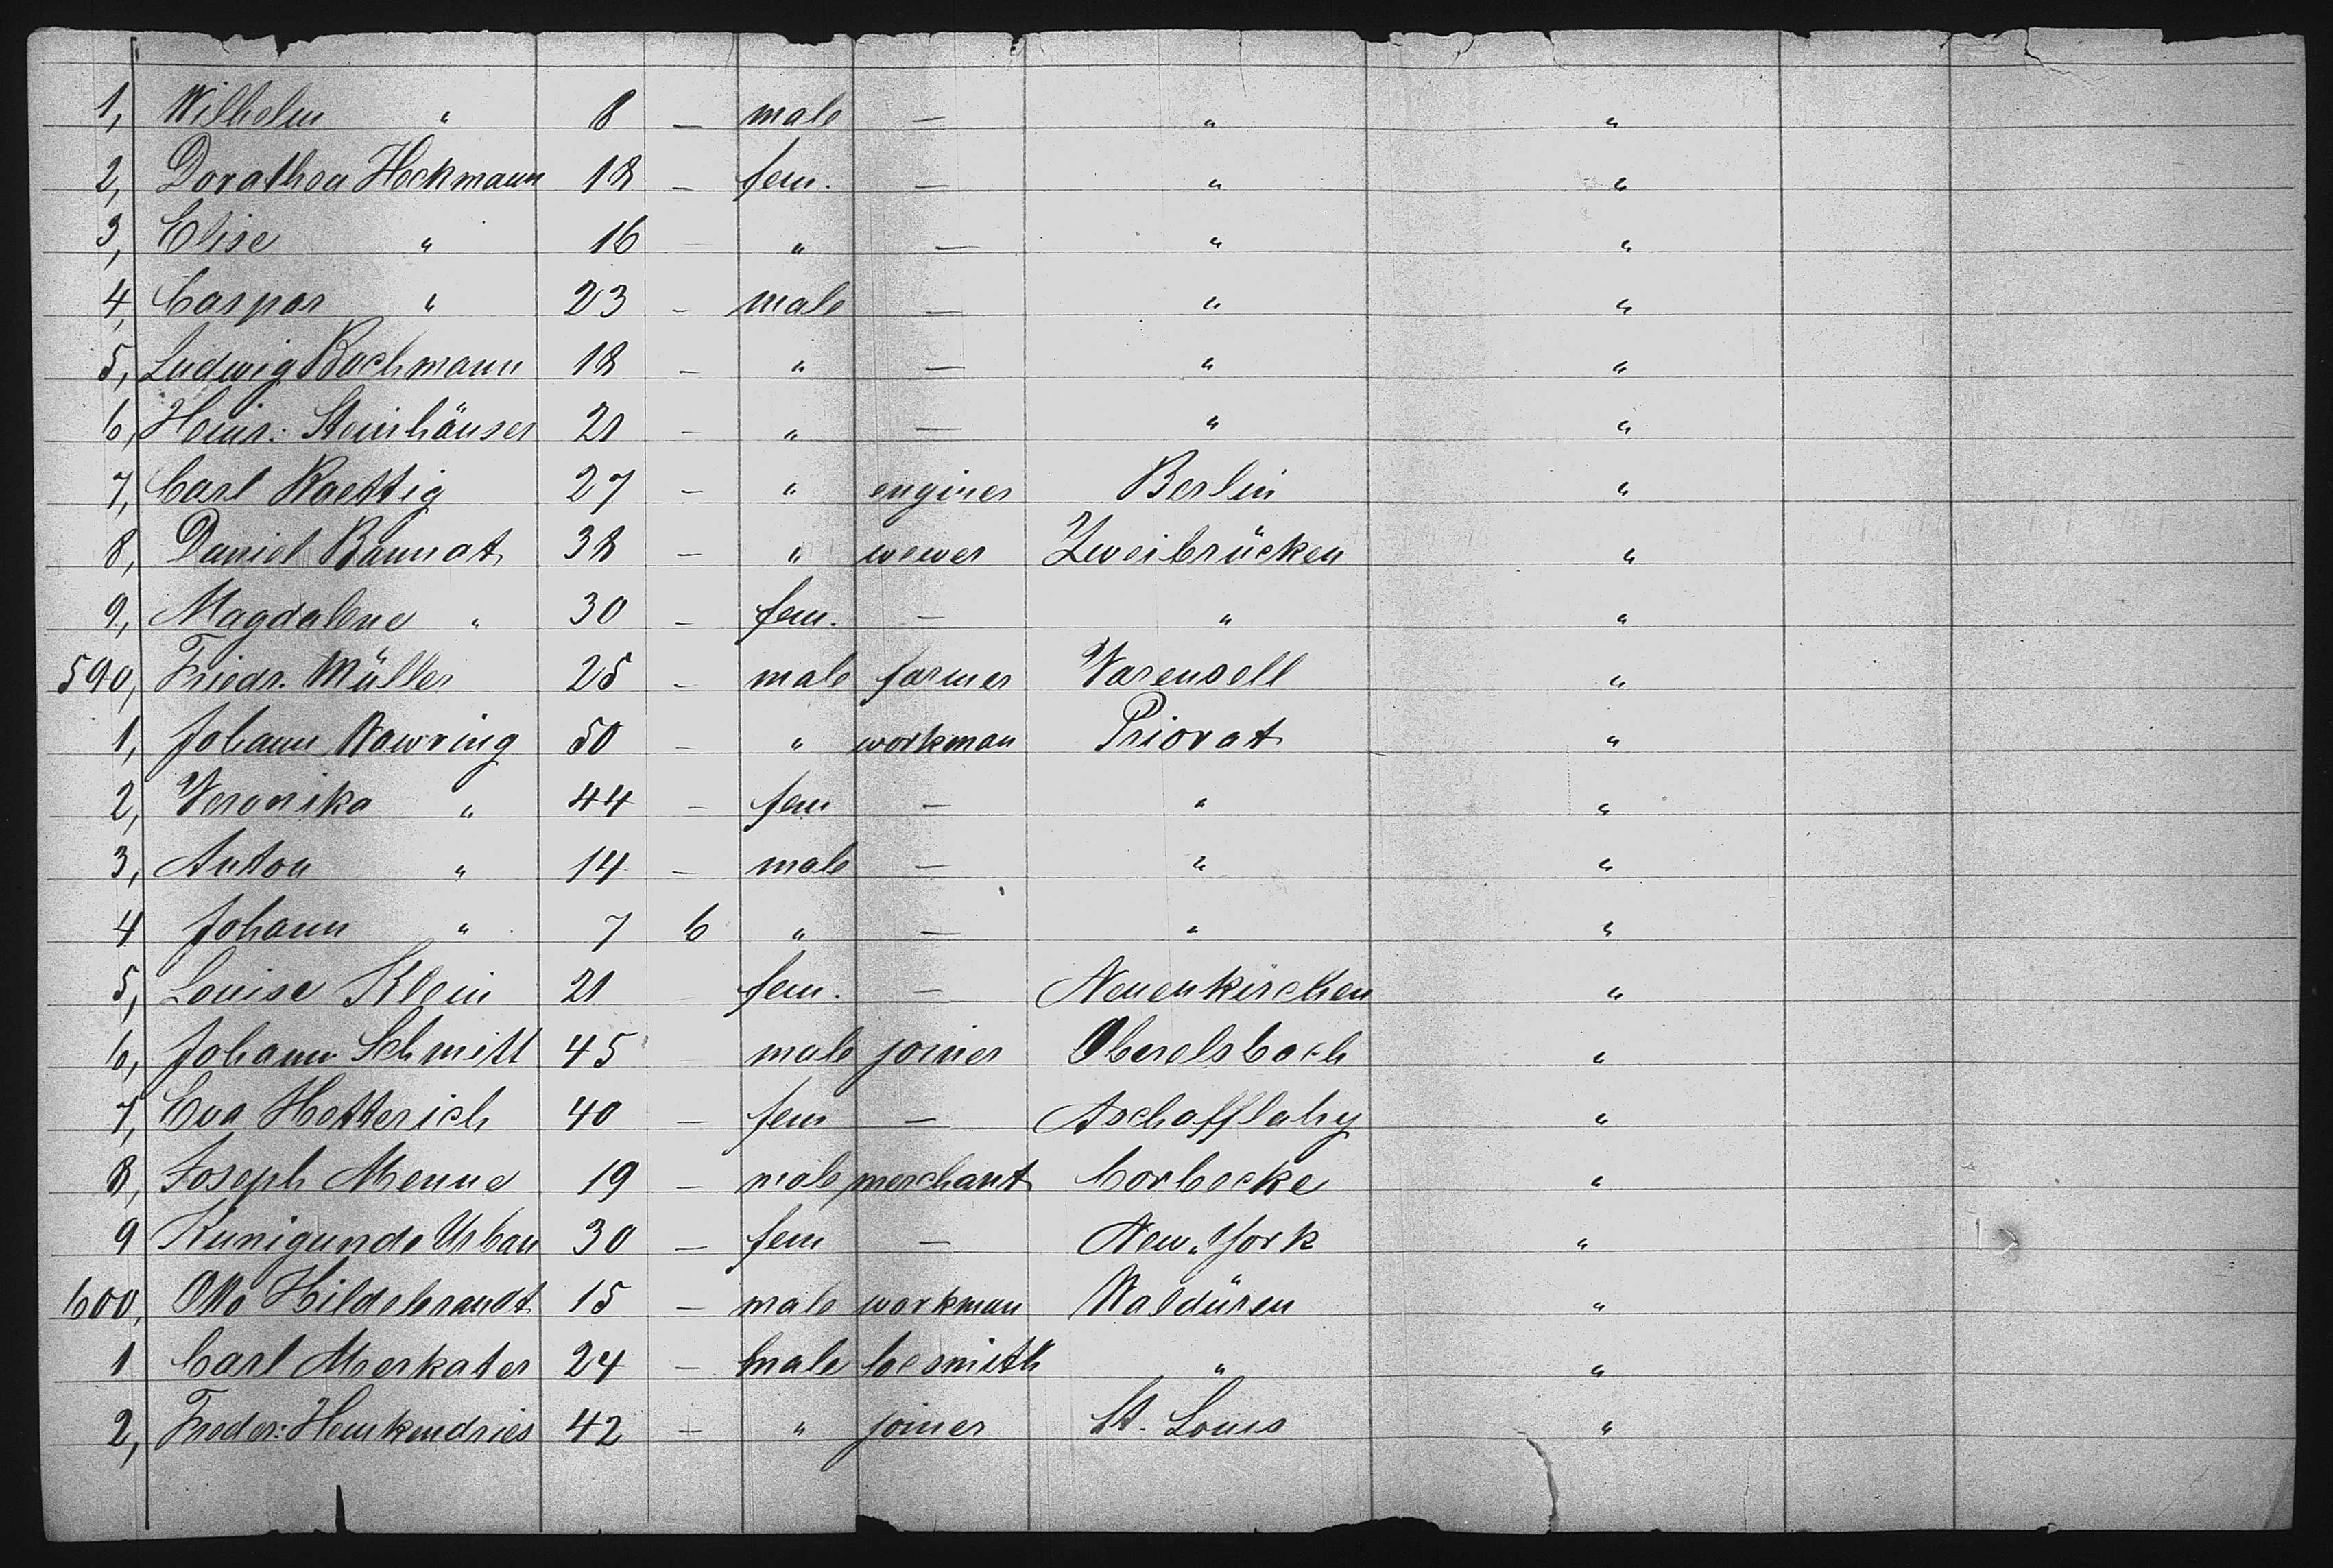 1, Wilhelm " 8 - male - " "
2, Dorathea Heckmann 18 - fem. - " "
3, Elise " 16 - " - " "
4, Caspar " 23 - male - " "
5, Ludwig Bachmann 18 - " - " "
6, Heinr: Steinhäuser 21 - " - " "
7, Carl Raettig 27 - " enginer Berlin "
8, Daniel Bannat 38 - " wewer Zweibrücken "
9, Magdalene " 30 - fem. - " "
590, Friedr. Müller 25 - male farmer Varensell "
1, Johann Nawring 50 - " workman Priorat "
2, Veronika " 44 - fem - " "
3, Anton " 14 - male - " "
4 Johann " 7 6 " - " "
5, Louise Klein 21 - fem. - Neuenkirchen "
6, Johann Schmitt 45 - male joiner Oberelsbach "
7, Eva Hetterich 40 - fem - "
8, Joseph Menne 19 - male merchant Corbecke "
9 Kunigunde Urban 30 - fem - New-York "
600, Otto Hildebrandt 15 - male workman Waldüren "
1 Carl Merkater 24 - male locsmith " "
2, Freder: Henkendries 42 - " joiner St. Louis "